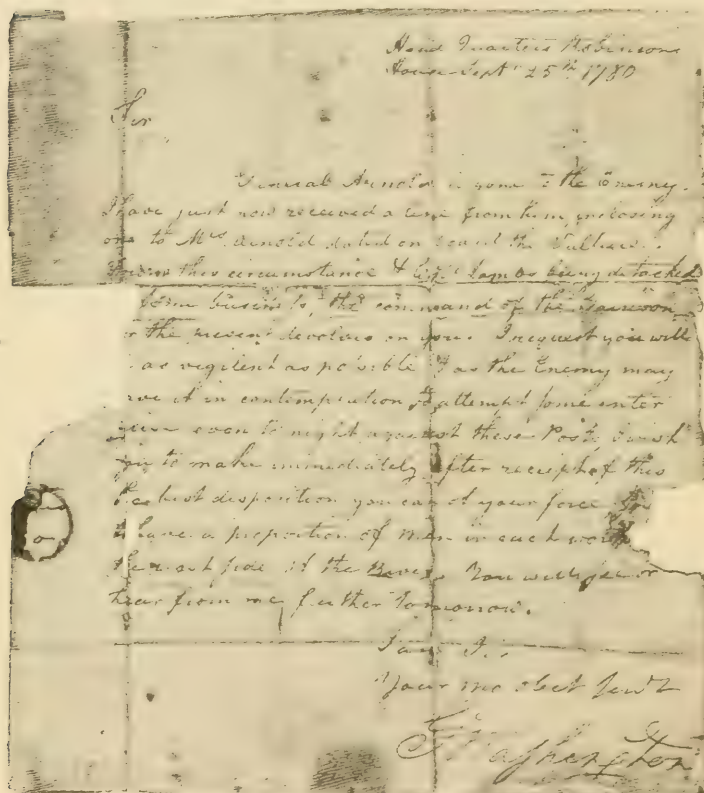 Head Quarters Robinsons
House Sept 25th 1780
Sir
General Arnold is gone to the Enemy.
I have just now received a line from him inclosing
one to Mrs Arnold dated on board the Vulture.
From this circumstance & Colo Lamb's being detached
business, the command of the Garrison
the present devolves on you. I request you will
as vigilent as possible as the Enemy may
it in contemplation to attempt some enter
even to night against these Posts, I wish
you to make immediately after receipt of this
the best disposition you can of your force so
have a proportion of men in each
the west side of the River. You will see or
hear from me further tomorrow.
I am Sr
Your mo obedt Servt
Go Washington